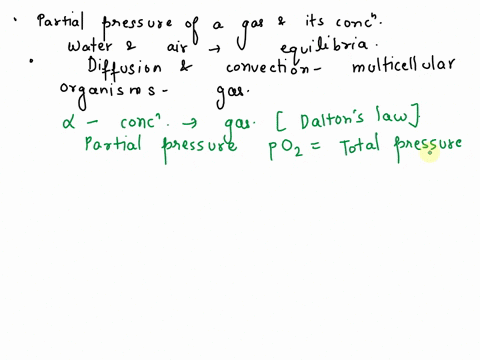 • Partial pressure of a gas & its concⁿ.
water & air → equilibria.
• Diffusion & convection - multicellular
organisms - gas.
α - concⁿ. → gas. [Dalton's law]
Partial pressure pO₂ = Total pressure